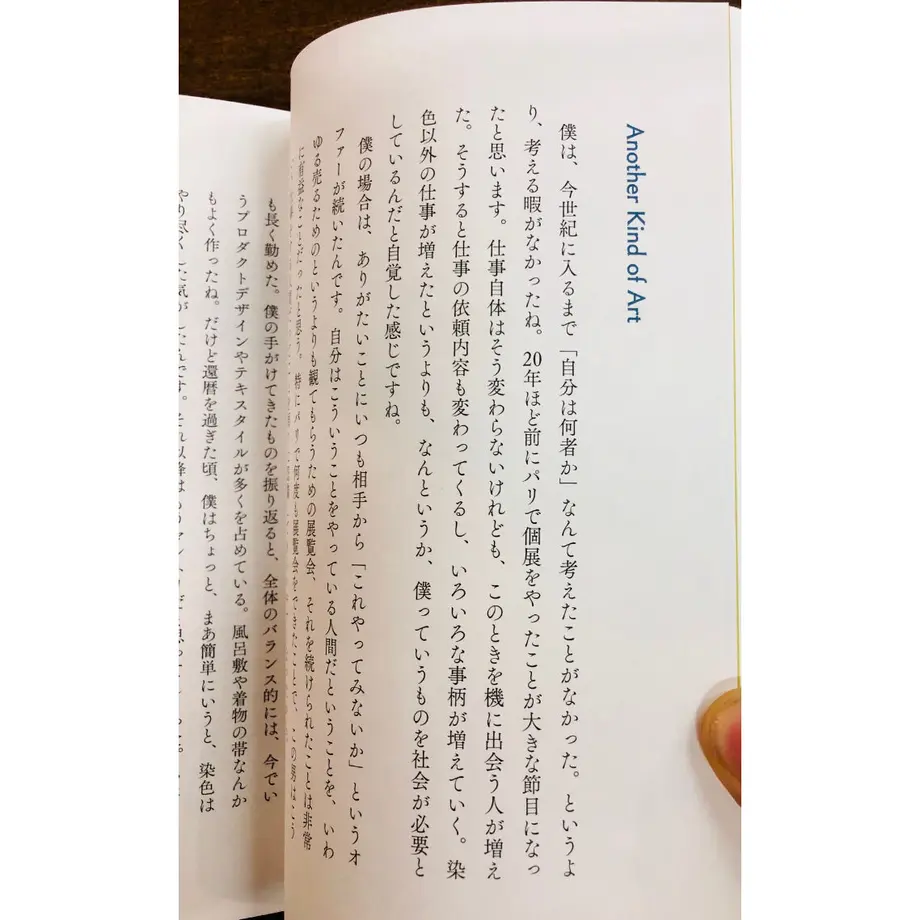 Another Kind of Art
僕は、今世紀に入るまで「自分は何者か」なんて考えたことがなかった。というよ
り、考える暇がなかったね。20年ほど前にパリで個展をやったことが大きな節目になっ
たと思います。仕事自体はそう変わらないけれども、このときを機に出会う人が増え
た。そうすると仕事の依頼内容も変わってくるし、いろいろな事柄が増えていく。染
色以外の仕事が増えたというよりも、なんというか、僕っていうものを社会が必要と
しているんだと自覚した感じですね。
僕の場合は、ありがたいことにいつも相手から「これやってみないか」というオ
ファーが続いたんです。自分はこういうことをやっている人間だということを、いわ
ゆる売るためのというよりも観てもらうための展覧会、それを続けられたことは非常
に有益なことだったと思う。特にパリで何度も展覧会をできたことで、
も長く勤めた。僕の手がけてきたものを振り返ると、全体のバランス的には、今でい
うプロダクトデザインやテキスタイルが多くを占めている。風呂敷や着物の帯なんか
もよく作ったね。だけど還暦を過ぎた頃、僕はちょっと、まあ簡単にいうと、染色は
やり尽くした気がしたんです。それ以降は